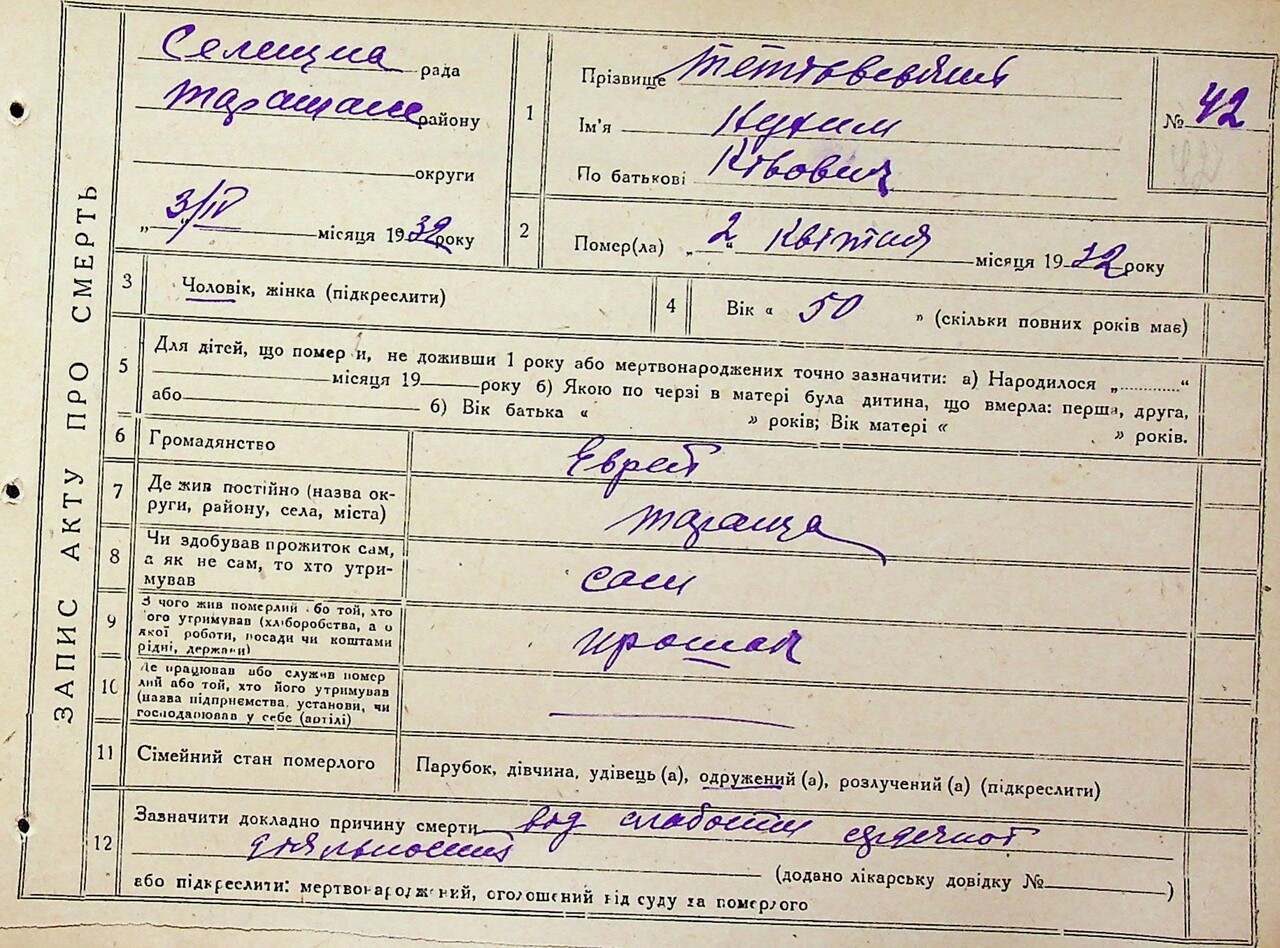 ЗАПИС АКТУ ПРО СМЕРТЬ
Селищна рада
района
округи
„3/IV місяця 1932 року
1
Прізвище
Ім'я Нухим
По батькові
№ 42
2
Помер(ла) „2“ квітня місяця 1932 року
3
Чоловік, жінка (підкреслити)
4
Вік « 50 » (скільки повних років має)
5
Для дітей, що померли, не доживши 1 року або мертвонароджених точно зазначити: а) Народилося „............“
місяця 19 року б) Якою по черзі в матері була дитина, що вмерла: перша, друга,
або б) Вік батька « » років; Вік матері « » років.
6
Громадянство
Єврей
7
Де жив постійно (назва ок-
руги, району, села, міста)
Тараща
8
Чи здобував прожиток сам,
а як не сам, то хто утри-
мував
сам
9
З чого жив померлий або той, хто
його утримував (хліборобства, а о
якої роботи, посади чи коштами
рідні, держави)
10
Де працював або служив помер
лий або той, хто його утримував
(назва підприємства, установи, чи
господарював у себе (артілі)
11
Сімейний стан померлого
Парубок, дівчина, удівець (а), одружений (а), розлучений (а) (підкреслити)
12
Зазначити докладно причину смерти від слабости сердечної
діяльности
(додано лікарську довідку № )
або підкреслити: мертвонароджений, оголошений від суду за померлого